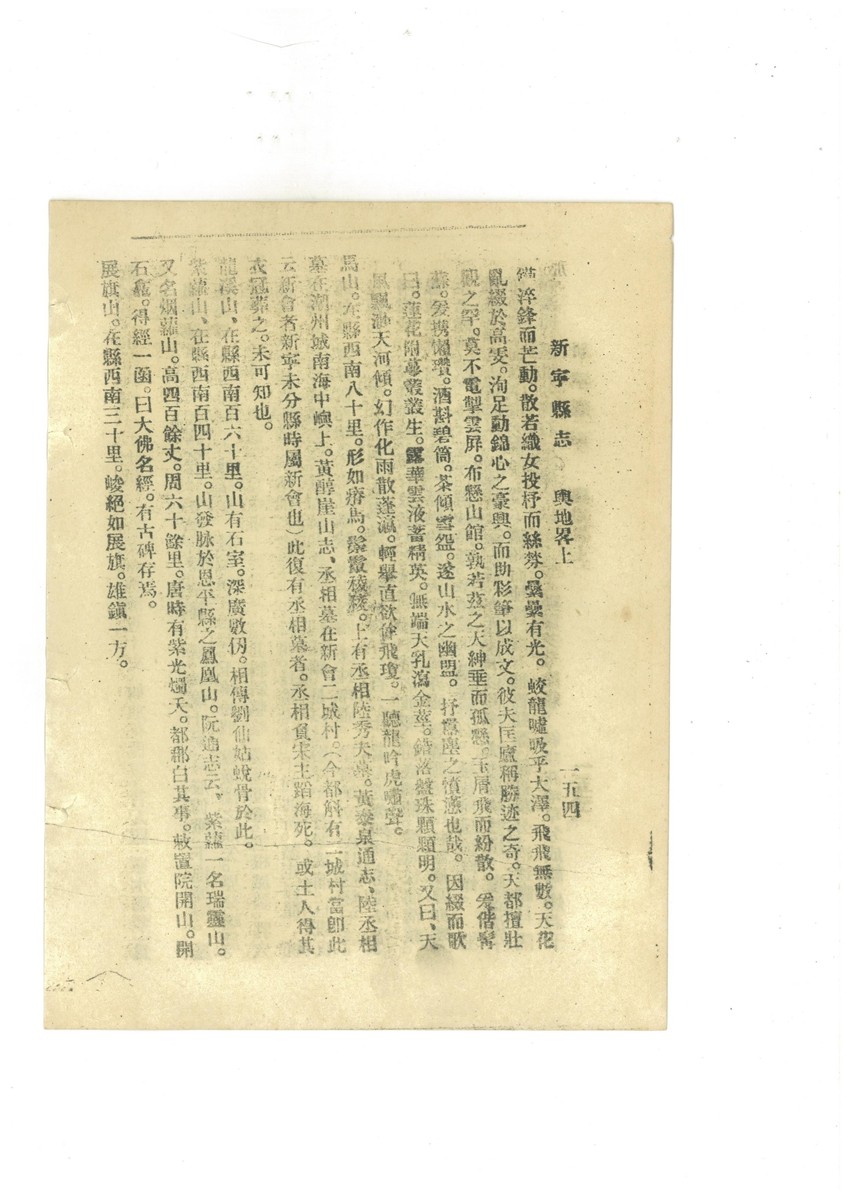 新寧縣志 輿地畧上 一五四
淬鋒而芒動。散若織女投杼而絲棼。纍纍有光。蛟龍噓吸乎大澤。飛飛無數。天花
亂綴於高雯。洵足動錦心之豪興。而助彩筆以成文。彼夫匡廬稱勝迹之奇。天都擅壯
觀之罕。莫不電掣雲屏。布懸山館。孰若茲之天紳垂而孤懸。玉屑飛而紛散。爰偕髯
爰携懶瓚。酒斟碧筒。茶傾雪盌。遂山水之幽盟。抒囂塵之憤懣也哉。因綴而歌
曰。蓮花附蕚叢叢生。露華雲液蓄精英。無端天乳瀉金莖。錯落盤珠顆顆明。又曰、天
風飄灑天河傾。幻作化雨散蓬瀛。輕舉直欲偕飛瓊。一聽龍吟虎嘯聲。
馬山。在縣西南八十里。形如瘠馬。鬃鬣稜稜。上有丞相陸秀夫墓。黃泰泉通志、陸丞相
墓在潮州城南海中嶼上。黃醇崖山志、丞相墓在新會二城村。（今都斛有二城村當卽此
云新會者新寧未分縣時屬新會也）此復有丞相墓者。丞相負宋主蹈海死。或土人得其
衣冠葬之。未可知也。
龍溪山、在縣西南百六十里。山有石室。深廣數仭。相傳劉仙姑蛻骨於此。
紫蘿山、在縣西南百四十里。山發脉於恩平縣之鳳凰山。阮通志云、紫蘿一名瑞靈山。
又名烟蘿山。高四百餘丈。周六十餘里。唐時有紫光燭天。都郡白其事。敕置院開山。開
石龕。得經一函。曰大佛名經。有古碑存焉。
展旗山。在縣西南三十里。峻絕如展旗。雄鎭一方。